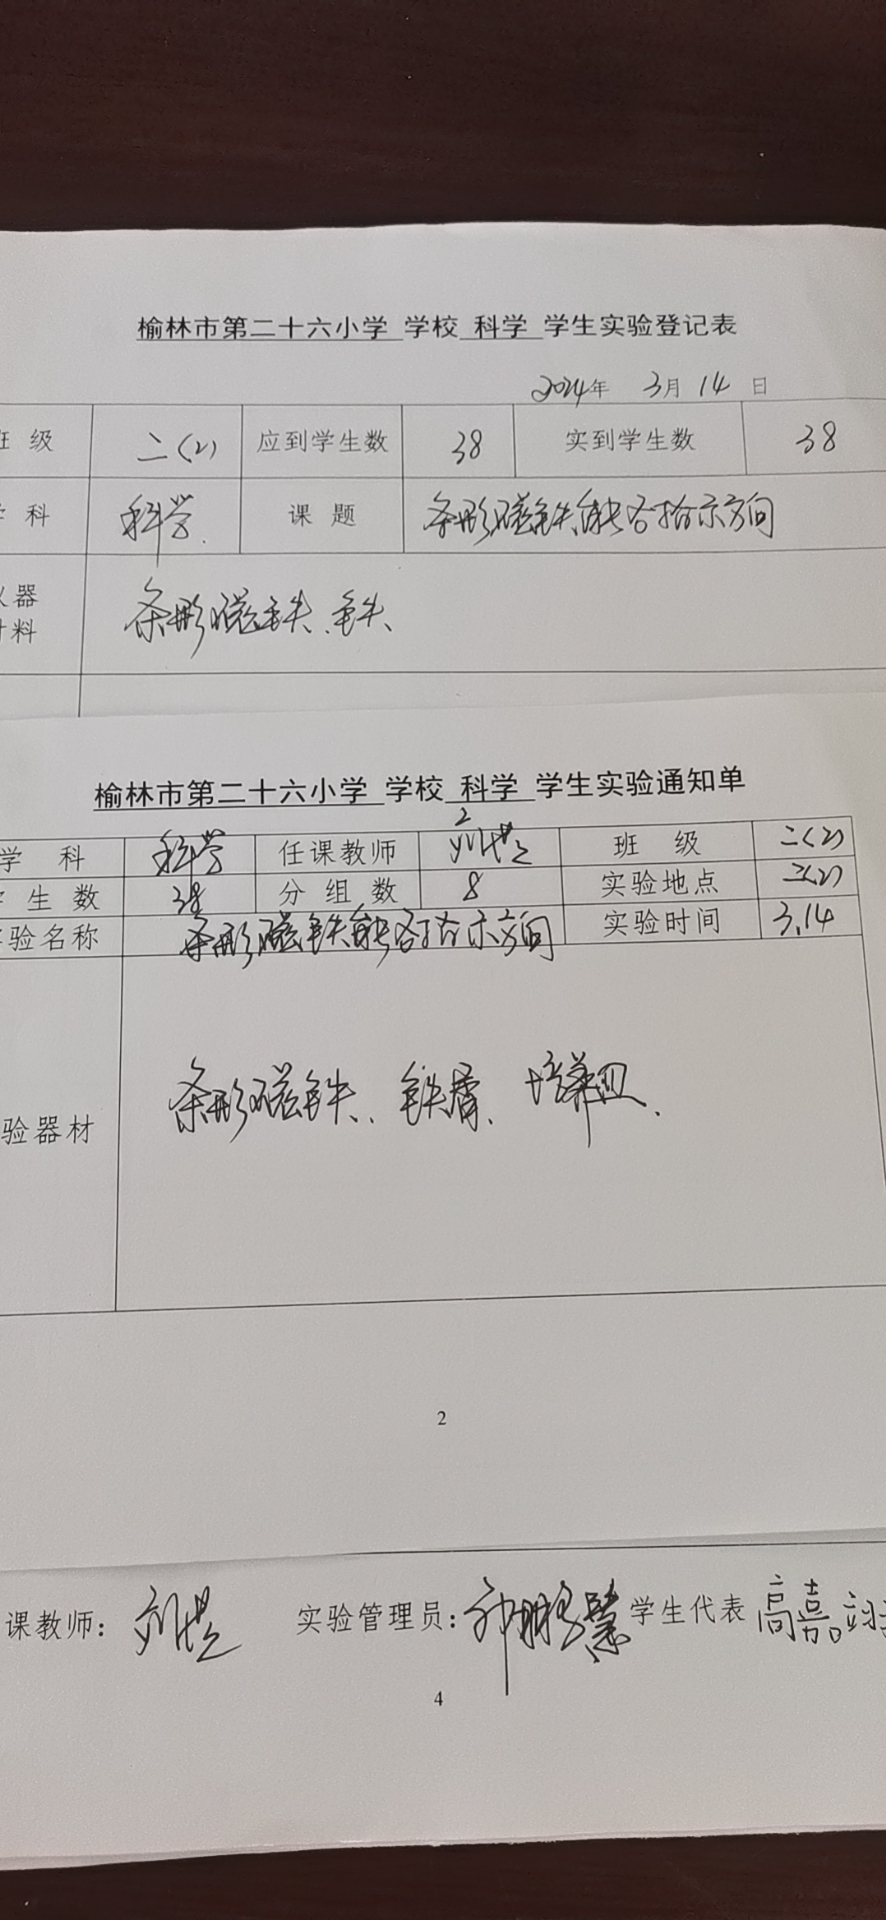 榆林市第二十六小学 学校 科学 学生实验登记表
2024年 3月 14 日
班 级 二(2) 应到学生数 38 实到学生数 38
学 科 科学. 课 题 条形磁铁能够指示方向
仪器 条形磁铁、铁、
材料
榆林市第二十六小学 学校 科学 学生实验通知单
学 科 科学 任课教师 班 级 二(2)
学 生 数 38 分 组 数 8 实验地点 二(2)
实验名称 条形磁铁能够指示方向 实验时间 3.14
验器材 条形磁铁、铁屑、培养皿、
2
课教师: 实验管理员: 学生代表 高嘉
4